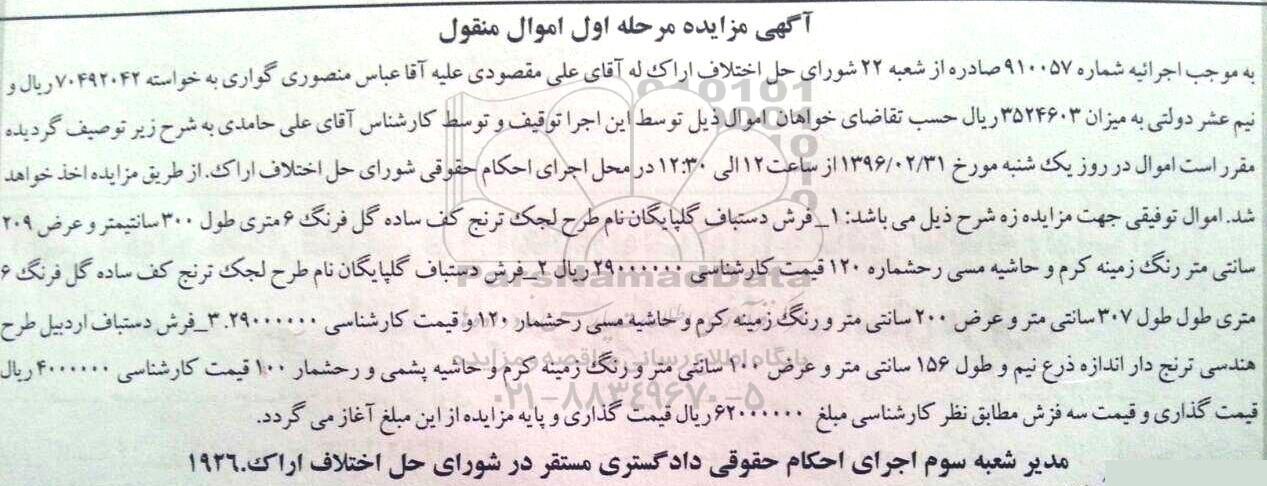 آگهی مزایده مرحله اول اموال منقول
به موجب اجرائیه شماره ۹۱۰۰۵۷ صادره از شعبه ۲۲ شورای حل اختلاف اراک له آقای علی مقصودی علیه آقا عباس منصوری گواری به خواسته ۷۰۴۹۲۰۴۲ ریال و
نیم عشر دولتی به میزان ۳۵۲۴۶۰۳ ریال حسب تقاضای خواهان اموال ذیل توسط این اجرا توقیف و توسط کارشناس آقای علی حامدی به شرح زیر توصیف گردیده
مقرر است اموال در روز یک شنبه مورخ ۱۳۹۶/۰۲/۳۱ از ساعت ۱۲ الی ۱۲:۳۰ در محل اجرای احکام حقوقی شورای حل اختلاف اراک. از طریق مزایده اخذ خواهد
شد. اموال توقیفی جهت مزایده زه شرح ذیل می باشد: ۱_فرش دستباف گلپایگان نام طرح لجک ترنج کف ساده گل فرنگ ۶ متری طول ۳۰۰ سانتیمتر و عرض ۲۰۹
سانتی متر رنگ زمینه کرم و حاشیه مسی رحشماره ۱۲۰ قیمت کارشناسی ۲۹۰۰۰۰۰۰ ریال ۲_فرش دستباف گلپایگان نام طرح لجک ترنج کف ساده گل فرنگ ۶
متری طول طول ۳۰۷ سانتی متر و عرض ۲۰۰ سانتی متر و رنگ زمینه کرم و حاشیه مسی رحشمار ۱۲۰ و قیمت کارشناسی ۲۹۰۰۰۰۰۰. ۳_فرش دستباف اردبیل طرح
هندسی ترنج دار اندازه ذرع نیم و طول ۱۵۶ سانتی متر و عرض ۱۰۰ سانتی متر و رنگ زمینه کرم و حاشیه پشمی و رحشمار ۱۰۰ قیمت کارشناسی ۴۰۰۰۰۰۰ ریال
قیمت گذاری و قیمت سه فزش مطابق نظر کارشناسی مبلغ ۶۲۰۰۰۰۰۰ ریال قیمت گذاری و پایه مزایده از این مبلغ آغاز می گردد.
مدیر شعبه سوم اجرای احکام حقوقی دادگستری مستقر در شورای حل اختلاف اراک.۱۹۲۶
ParsNamadData
پایگاه اطلاع رسانی مناقصه و مزایده
۰۲۱-۸۸۳۴۹۶۷۰-۵